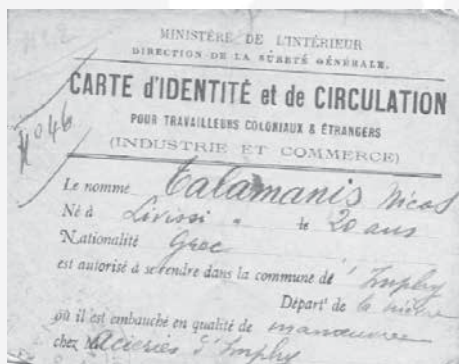 MINISTÈRE DE L'INTÉRIEUR
DIRECTION DE LA SÛRETÉ GÉNÉRALE.
CARTE d'IDENTITÉ et de CIRCULATION
POUR TRAVAILLEURS COLONIAUX & ÉTRANGERS
(INDUSTRIE ET COMMERCE)
Le nommé Calamanis Nicos
Né à Livissi le 20 ans
Nationalité Grec
est autorisé à se rendre dans la commune de Imphy
Départ' de la Nièvre
où il est embauché en qualité de manœuvre
chez M Acieries d'Imphy